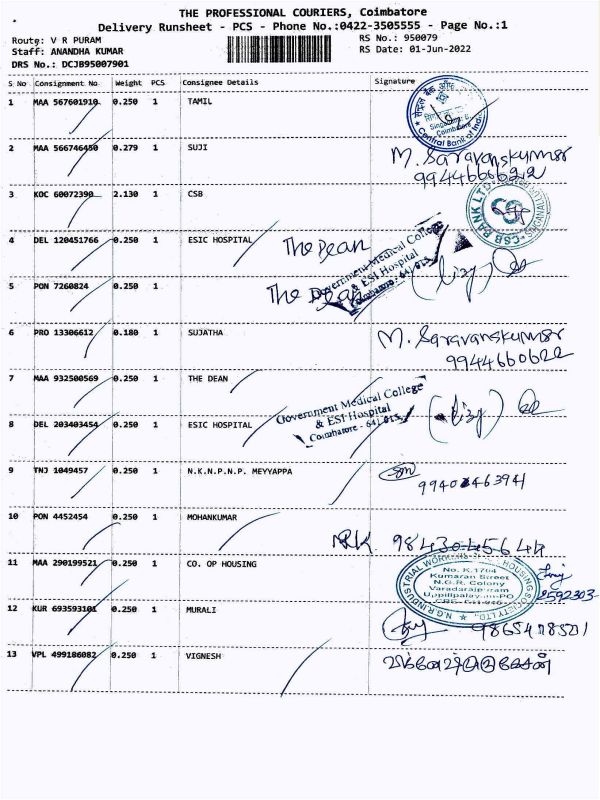 THE PROFESSIONAL COURIERS, Coimbatore
Delivery Runsheet - PCS - Phone No.:0422-3505555 - Page No.:1
Route: V R PURAM RS No.: 950079
Staff: ANANDHA KUMAR RS Date: 01-Jun-2022
DRS No.: DCJB95007901
S No Consignment No. Weight PCS Consignee Details Signature
1 MAA 567601910 0.250 1 TAMIL
Central Bank of India
2 MAA 566746450 0.279 1 SUJI M. Saravanakumar
9944660622
3 KOC 60072390 2.130 1 CSB
CSB BANK LTD
4 DEL 120451766 0.250 1 ESIC HOSPITAL The Dean
Government Medical College
& ESI Hospital
Coimbatore - 641 015
5 PON 7260824 0.250 1 The Dean
6 PRO 13306612 0.180 1 SUJATHA M. Saravanakumar
9944660622
7 MAA 932500569 0.250 1 THE DEAN
Government Medical College
& ESI Hospital
Coimbatore - 641 015
8 DEL 203403454 0.250 1 ESIC HOSPITAL
9 TNJ 1049457 0.250 1 N.K.N.P.N.P. MEYYAPPA
10 PON 4452454 1 MOHANKUMAR
0.250
11 MAA 290199521 0.250 1 CO. OP HOUSING
No. K.1704
Kumaran Street
N.G.R. Colony
Varadarajapuram
Uppilipalayam-PO
12 KUR 693593101 0.250 1 MURALI
13 VPL 499186082 0.250 1 VIGNESH